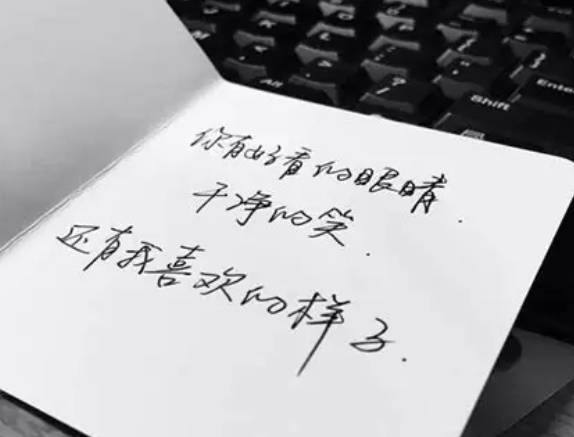 Enter
Shift
Alt
?
你有好看的眼睛.
干净的笑.
还有我喜欢的样子.